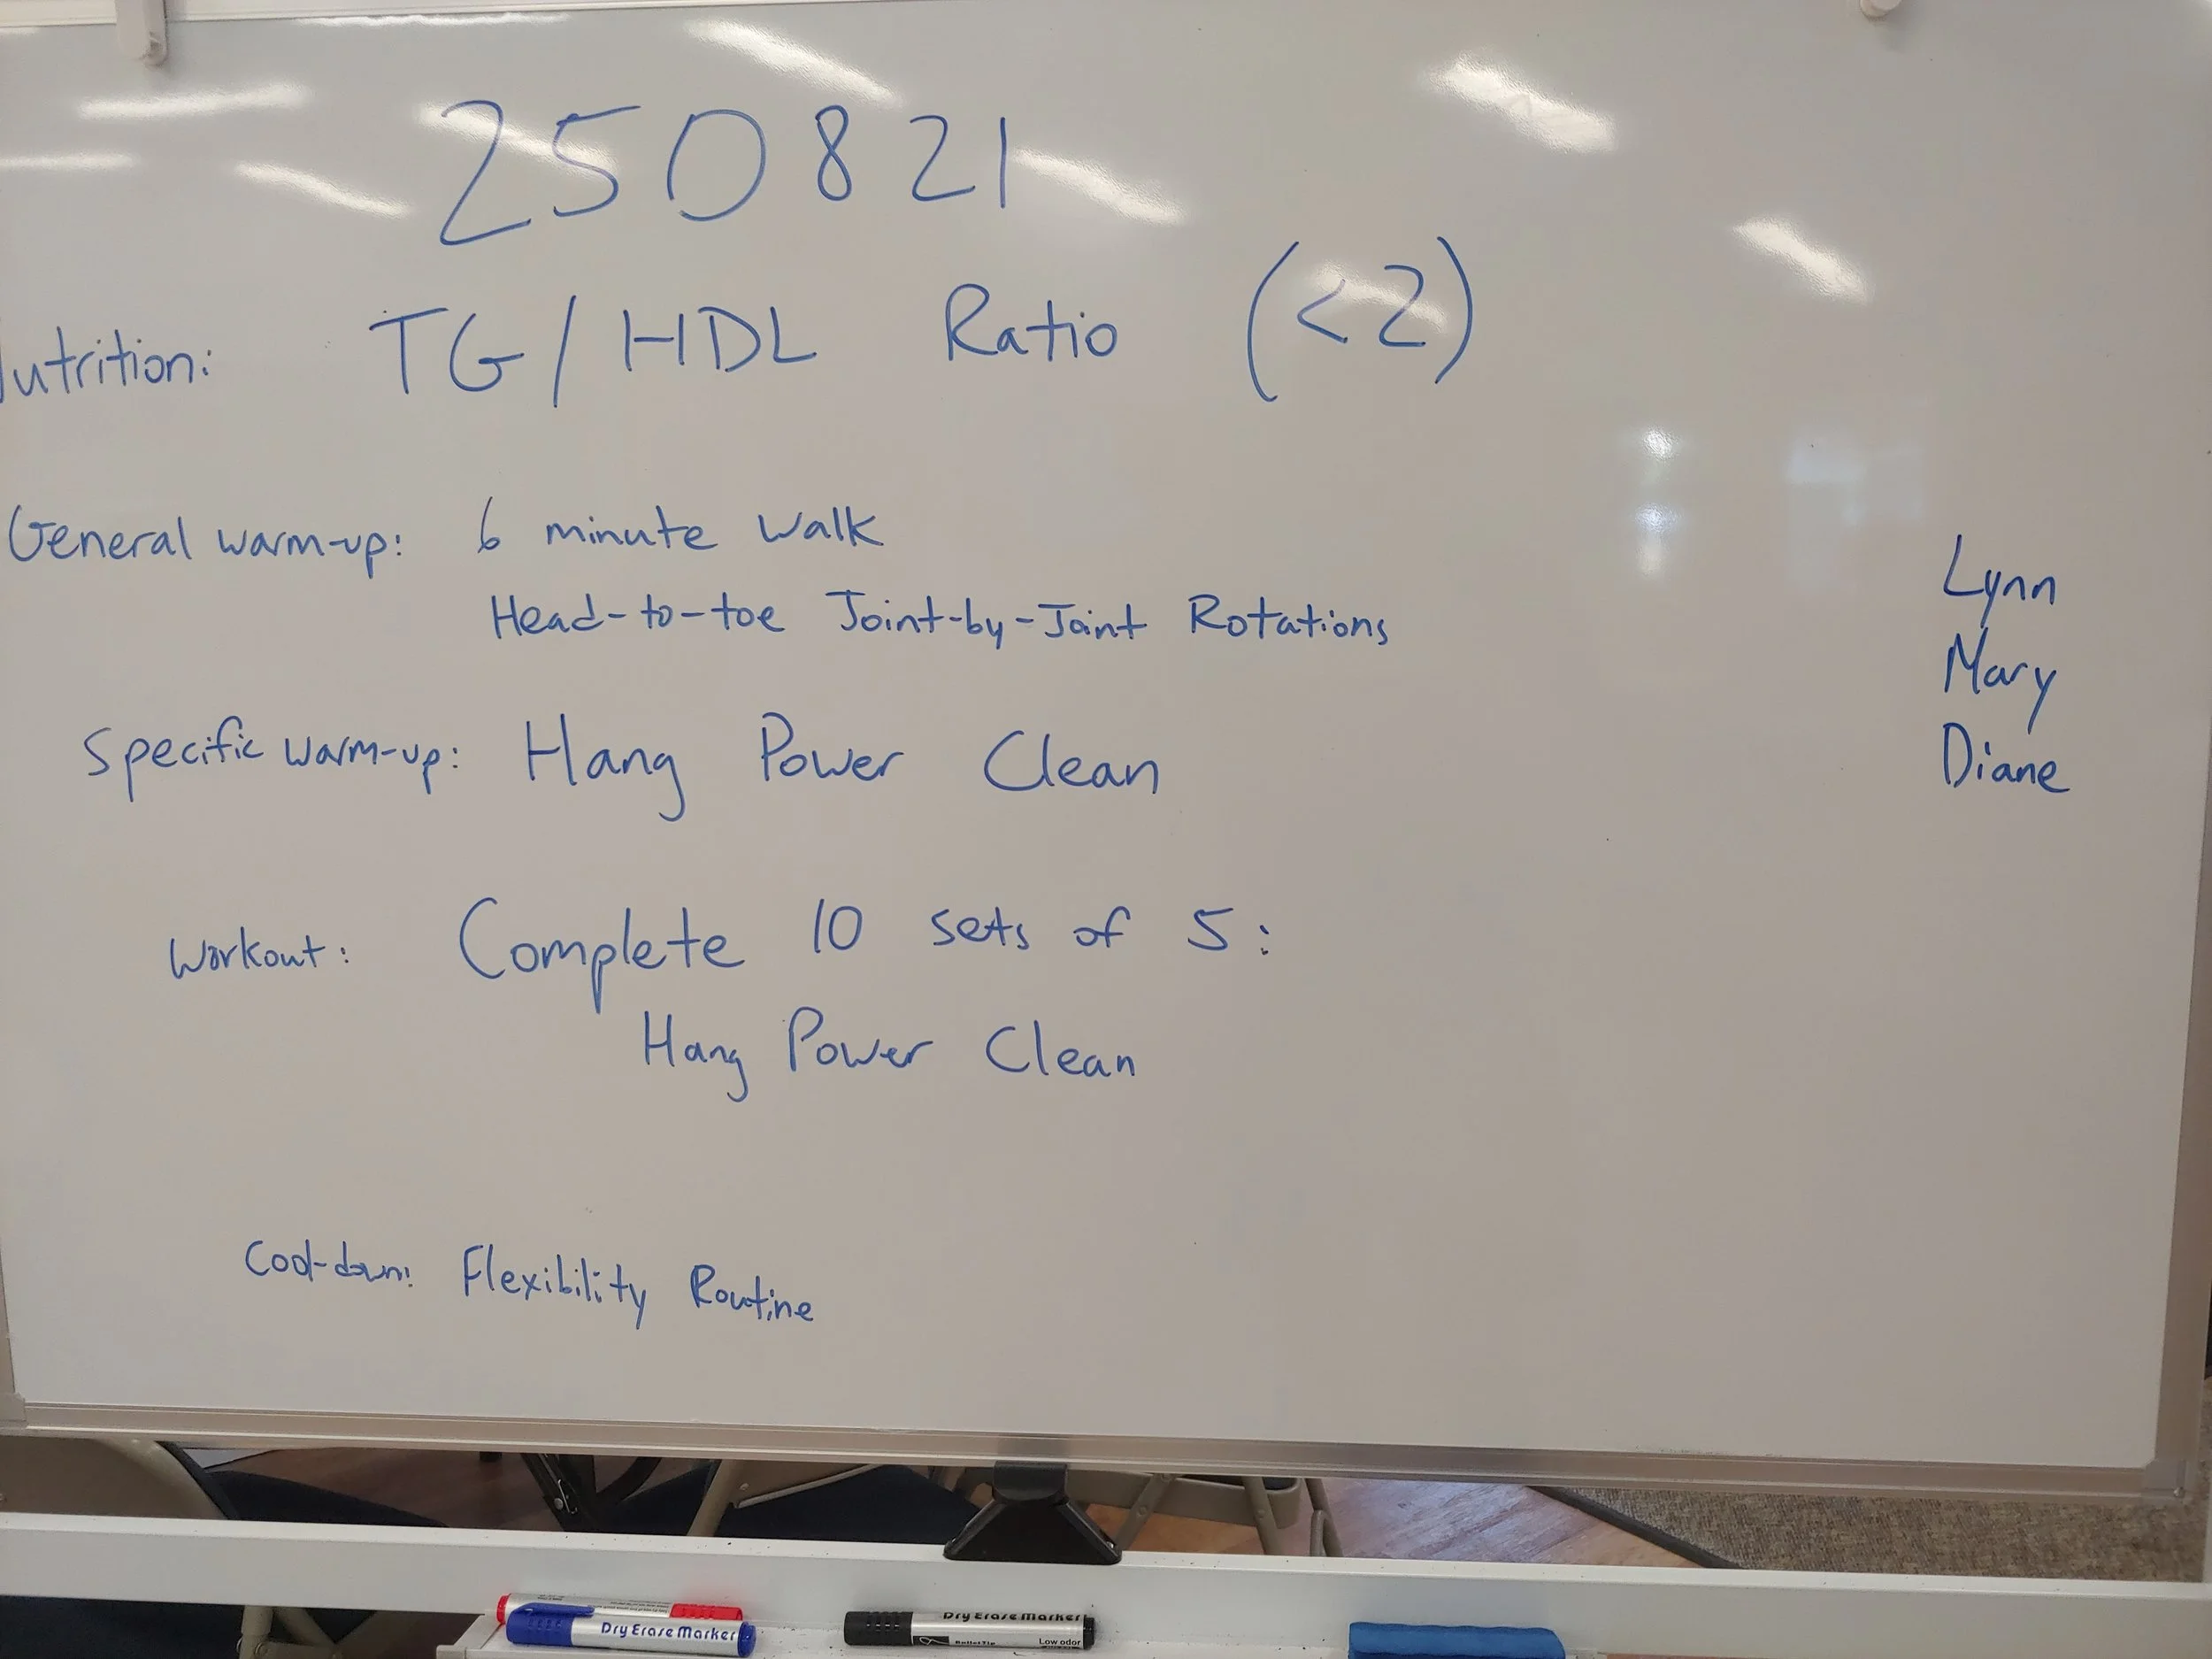 250821
utrition: TG/HDL Ratio (<2)
General warm-up: 6 minute walk
Head-to-toe Joint-by-Joint Rotations
Specific warm-up: Hang Power Clean
Workout: Complete 10 sets of 5:
Hang Power Clean
Cool-down: Flexibility Routine
Lynn
Mary
Diane
Dry Erase Marker
Dry Erase Marker
Bullet Tip
Low odor